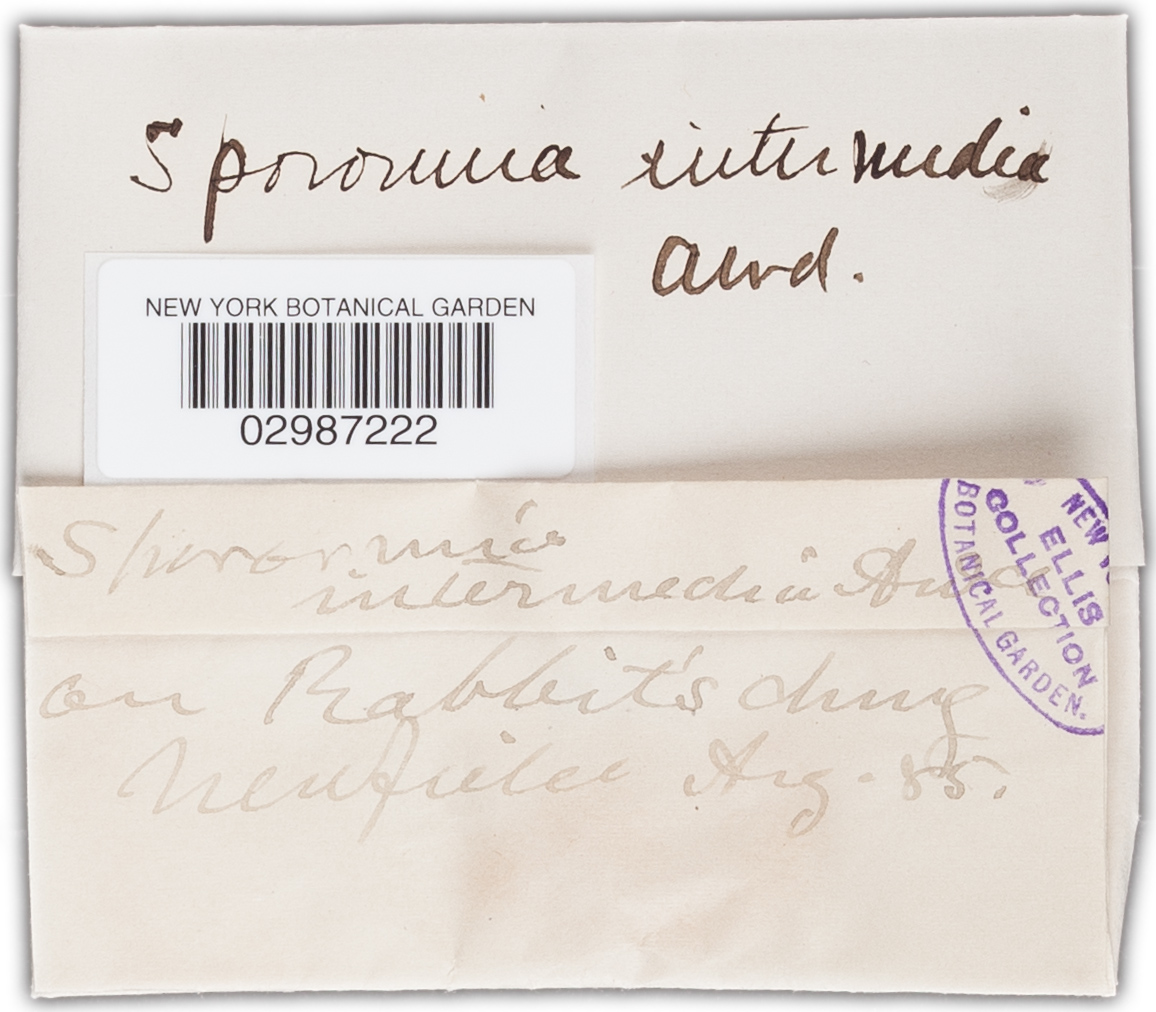 Sporormia intermedia
Awd.
NEW YORK BOTANICAL GARDEN
02987222
Sporormia
intermedia Awd
on Rabbit's dung
Newfield Aug. 85.
NEW YO
ELLIS
COLLECTION
BOTANICAL GARDEN.